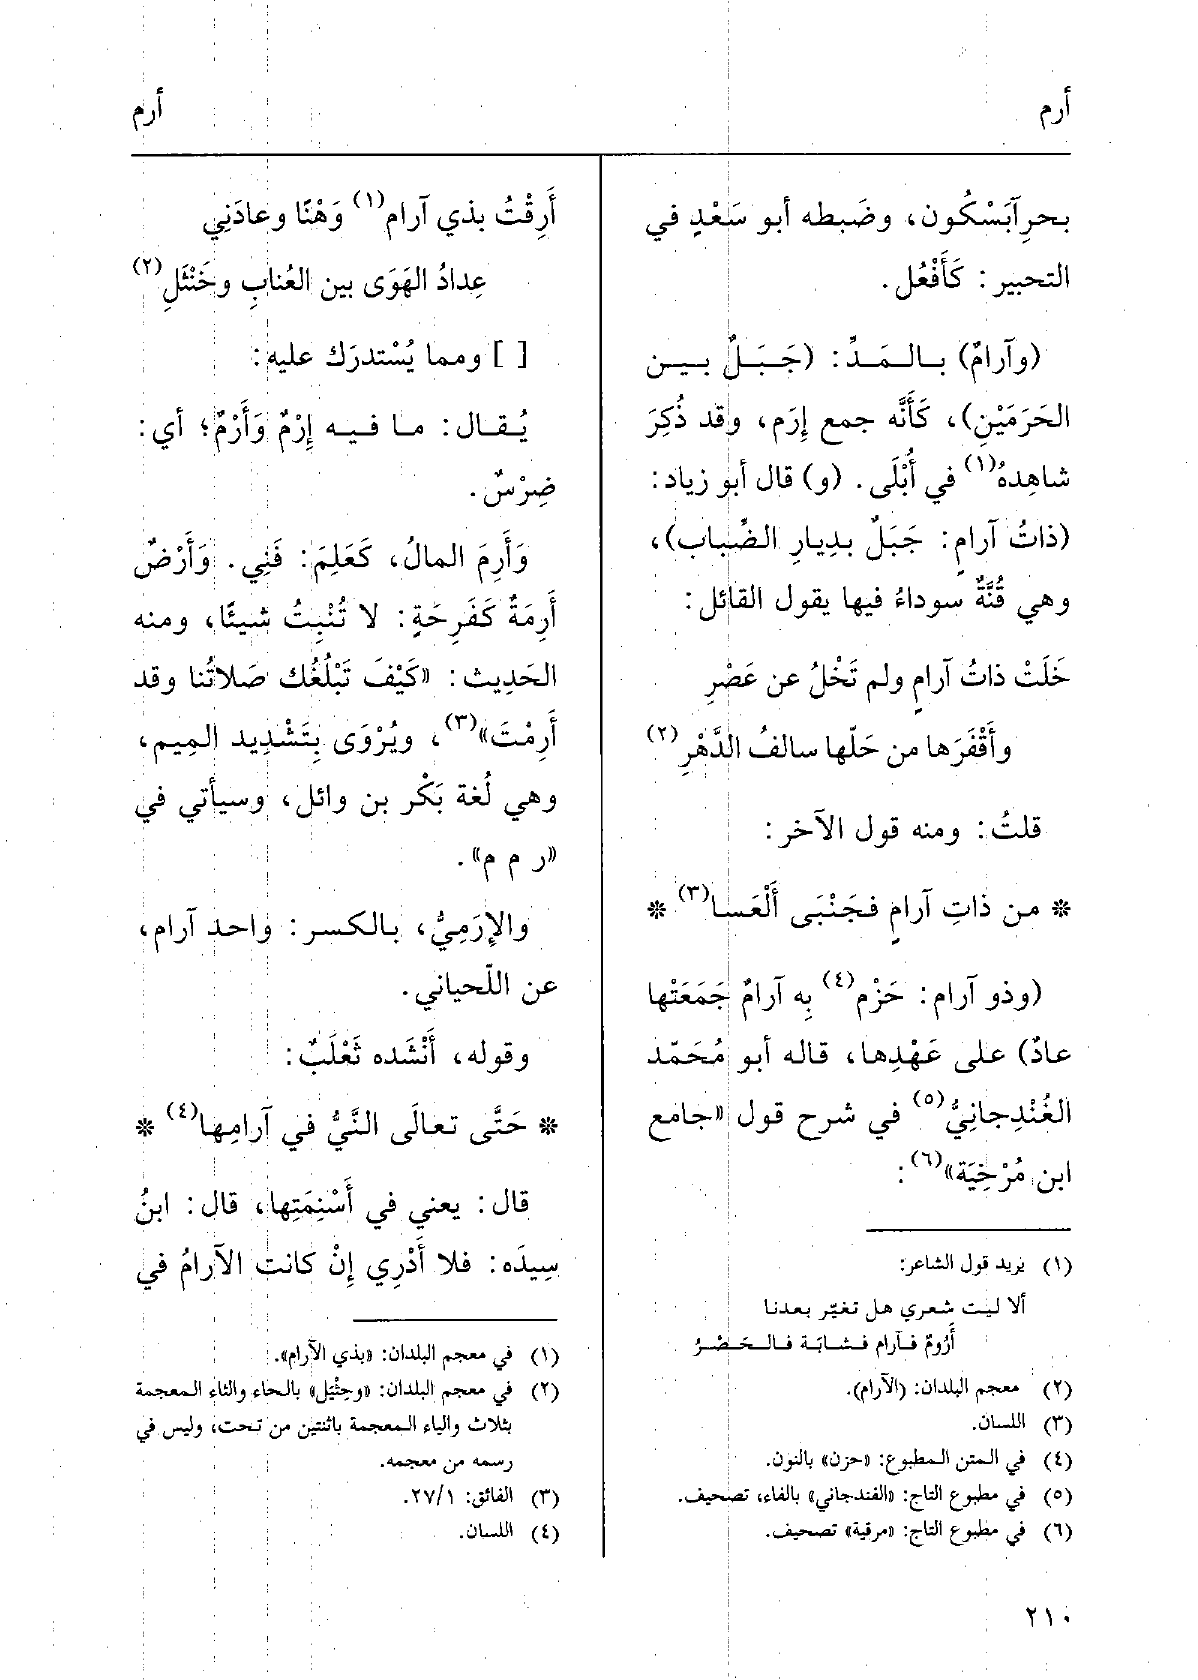 أرم
أرم
بحرِآبَسْكُون، وضَبطه أبو سَعْدٍ في
التحبير: كَأَفْعُل.
(وآرامٌ) بالمَدِّ: (جَبَلٌ بين
الحَرَمَيْنِ)، كَأَنَّه جمع إِرَم، وقد ذُكِرَ
شاهِدهُ(١) في أُبْلَى. (و) قال أبو زياد:
(ذاتُ آرامٍ: جَبَلٌ بدِيارِ الضِّباب)،
وهي قُنَّةٌ سوداءُ فيها يقول القائل:
خَلَتْ ذاتُ آرامٍ ولم تَخْلُ عن عَصْرِ
وأَقْفَرَها من حَلّها سالفُ الدَّهْرِ(٢)
قلتُ: ومنه قول الآخر:
* من ذاتِ آرامٍ فجَنْبَى أَلْعَسا(٣) *
(وذو آرام: حَزْم(٤) بِه آرامٌ جَمَعَتْها
عادٌ) على عَهْدِها، قاله أبو مُحَمّد
الغُنْدِجانِيُّ(٥) في شرح قول «جامع
ابن مُرْخِيَة»(٦):
(١) يريد قول الشاعر:
ألا ليت شعري هل تغيّر بعدنا
أَرُومٌ فآرام فشابَة فالحَضْرُ
(٢) معجم البلدان: (الآرام).
(٣) اللسان.
(٤) في المتن المطبوع: «حزن» بالنون.
(٥) في مطبوع التاج: «الفندجاني» بالفاء، تصحيف.
(٦) في مطبوع التاج: «مرقية» تصحيف.
أَرِقْتُ بذي آرام(١) وَهْنًا وعادَنِي
عِدادُ الهَوَى بين العُنابِ وخَنْثَلِ(٢)
[ ] ومما يُسْتدرَك عليه:
يُقال: ما فيه إِرْمٌ وَأَرْمٌ؛ أي:
ضِرْسٌ.
وَأَرِمَ المالُ، كَعَلِمَ: فَنِي. وَأَرْضٌ
أَرِمَةٌ كَفَرِحَةٍ: لا تُنْبِتُ شيئًا، ومنه
الحَدِيث: «كَيْفَ تَبْلُغُك صَلاتُنا وقد
أَرِمْتَ»(٣)، ويُرْوَى بِتَشْدِيد المِيم،
وهي لُغة بَكْر بن وائل، وسيأتي في
«ر م م».
والإِرَمِيُّ، بالكسر: واحد آرام،
عن اللّحياني.
وقوله، أَنْشَده ثَعْلَبٌ:
* حَتَّى تعالَى النَّيُّ في آرامِها(٤) *
قال: يعني في أَسْنِمَتِها، قال: ابنُ
سِيدَه: فلا أَدْرِي إِنْ كانت الآرامُ في
(١) في معجم البلدان: «بذي الآرام».
(٢) في معجم البلدان: «وحِثْيَل» بالحاء والثاء المعجمة
بثلاث والياء المعجمة باثنتين من تحت، وليس في
رسمه من معجمه.
(٣) الفائق: ٢٧/١.
(٤) اللسان.
٢١٠